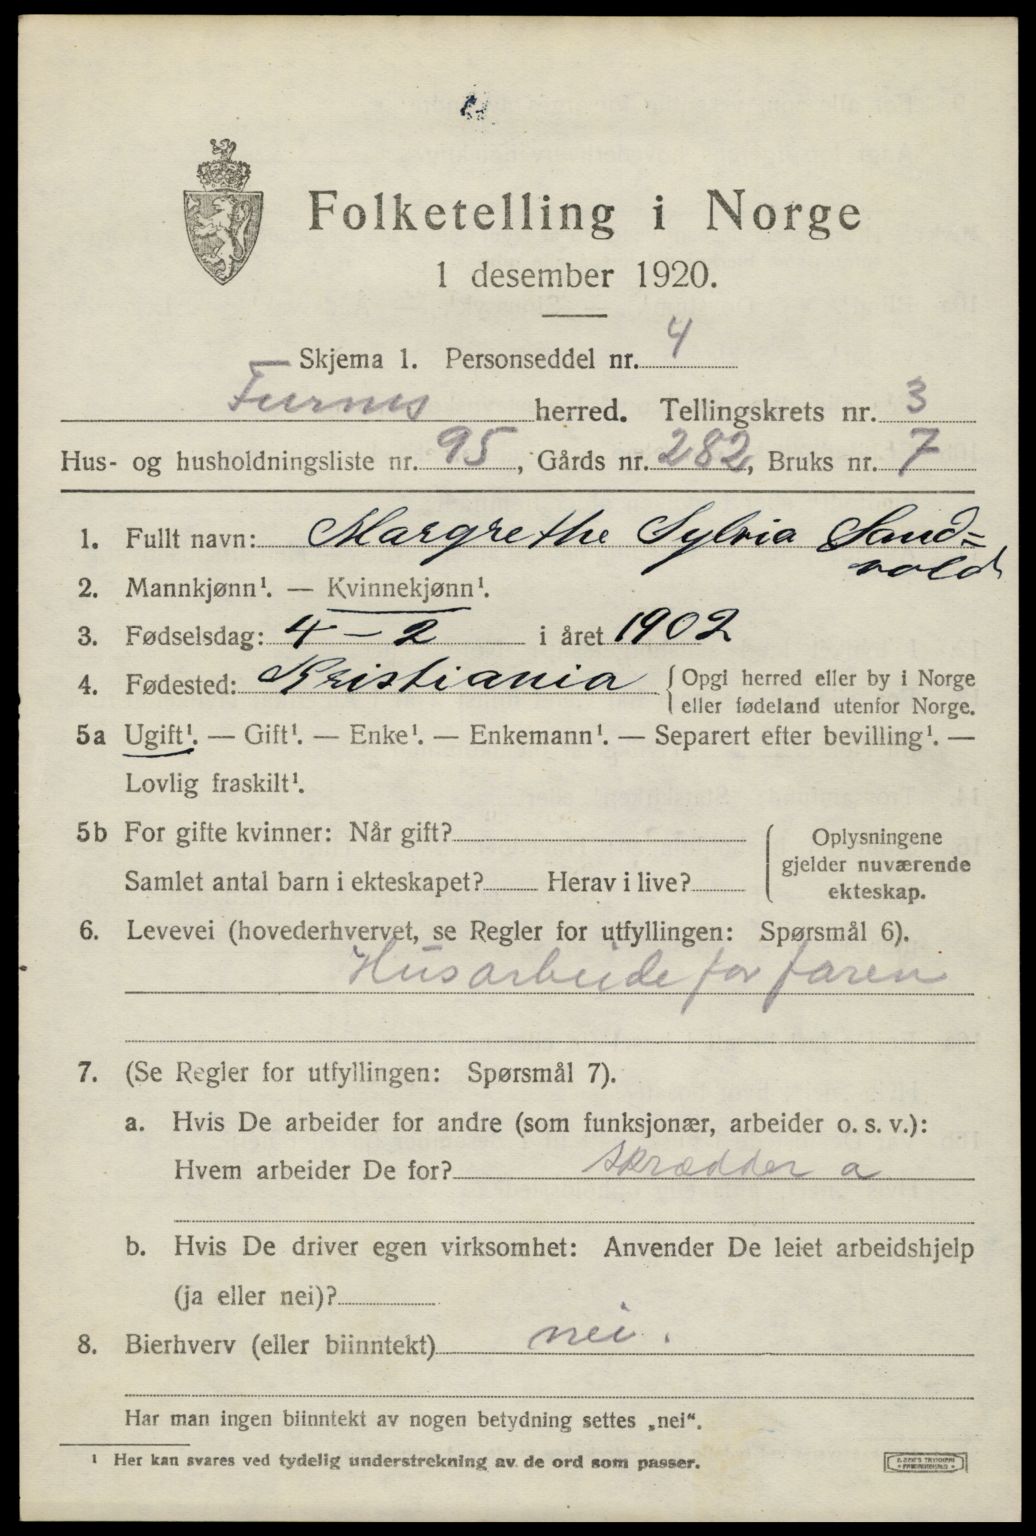 Folketelling i Norge
1 desember 1920.
Skjema 1. Personseddel nr. 4
Furnes herred. Tellingskrets nr. 3
Hus- og husholdningsliste nr. 95, Gårds nr. 282, Bruks nr. 7
1. Fullt navn: Margrethe Sylvia Sand=
vold
2. Mannkjønn¹. — Kvinnekjønn¹.
3. Fødselsdag: 4 - 2 i året 1902
4. Fødested: Kristiania {Opgi herred eller by i Norge
eller fødeland utenfor Norge.
5a Ugift¹. — Gift¹. — Enke¹. — Enkemann¹. — Separert efter bevilling¹. —
Lovlig fraskilt¹.
5b For gifte kvinner: Når gift?
Samlet antal barn i ekteskapet? Herav i live?
Oplysningene
gjelder nuværende
ekteskap.
6. Levevei (hovederhvervet, se Regler for utfyllingen: Spørsmål 6).
Husarbeide for faren
7. (Se Regler for utfyllingen: Spørsmål 7).
a. Hvis De arbeider for andre (som funksjonær, arbeider o. s. v.):
Hvem arbeider De for? Skrædder a
b. Hvis De driver egen virksomhet: Anvender De leiet arbeidshjelp
(ja eller nei)?
8. Bierhverv (eller biinntekt) nei.
Har man ingen biinntekt av nogen betydning settes „nei“.
¹ Her kan svares ved tydelig understrekning av de ord som passer.